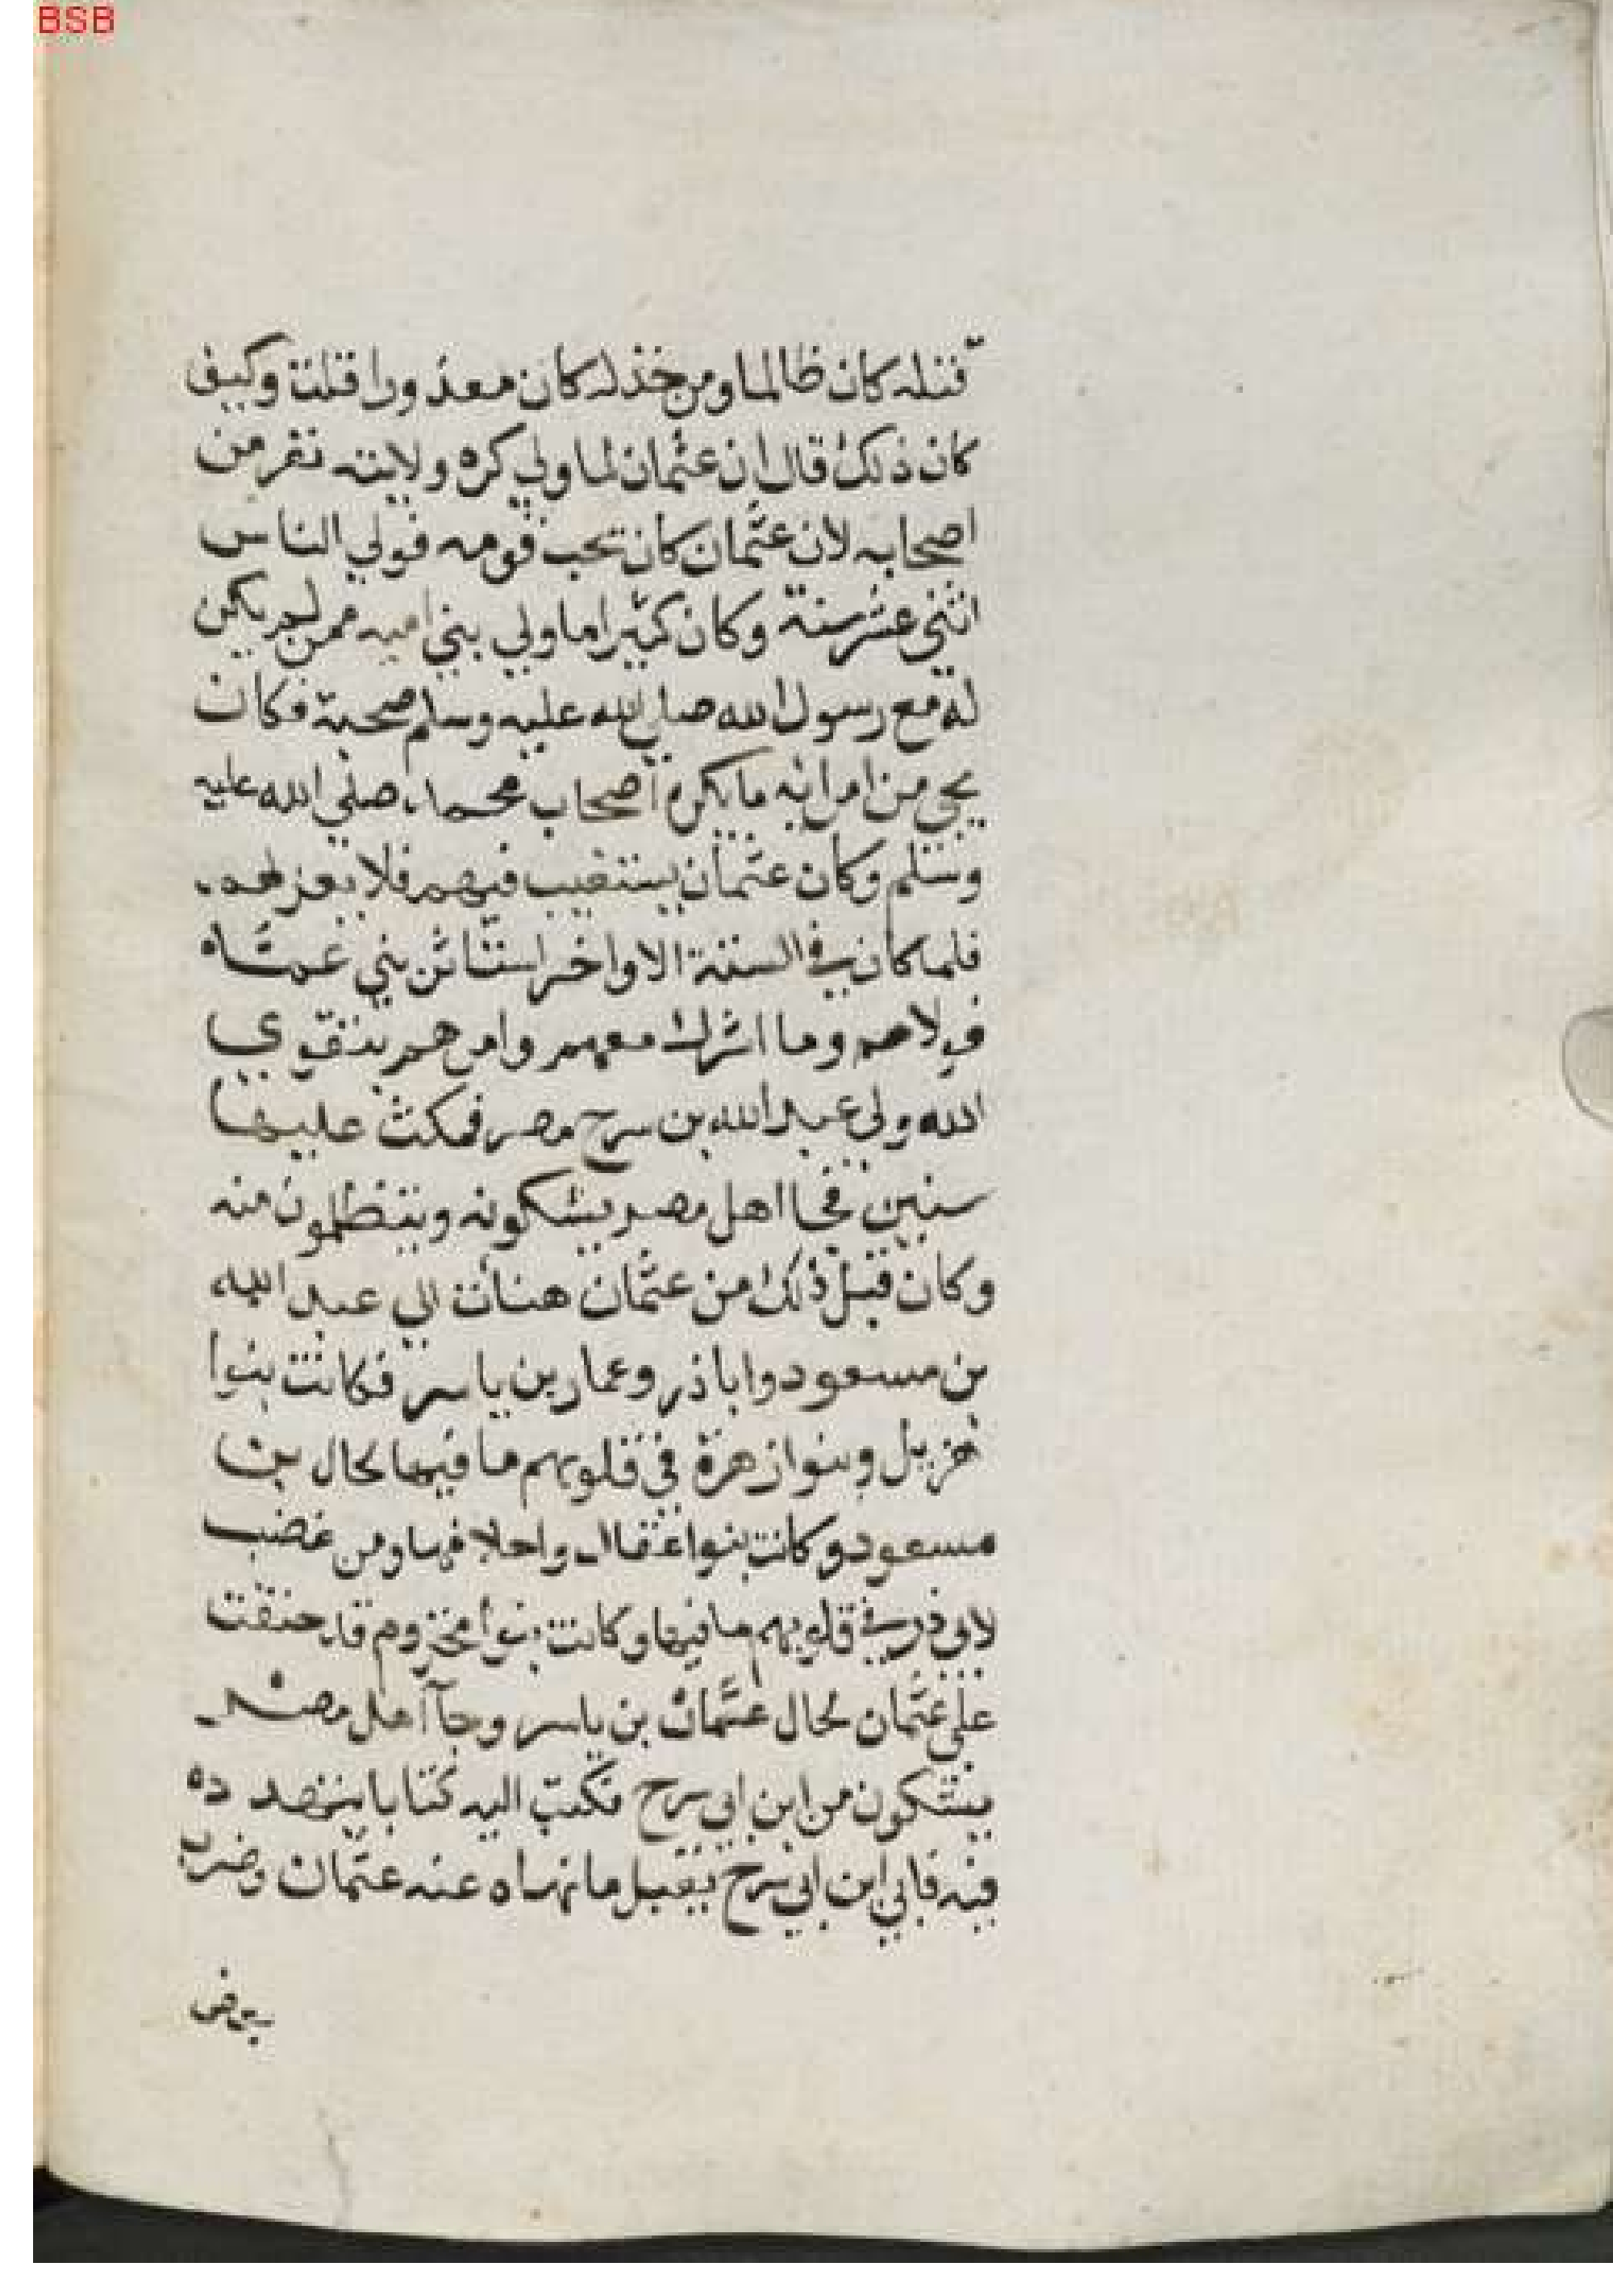 BSB
قتله كان ظالما ومن خذله كان معذورا قلت وكيف
كان ذلك قال ان عثمان لما ولي كره ولايته نفر من
اصحابه لان عثمان كان يحب قومه فولي الناس
اثنتي عشر سنة وكان كثيرا ما ولي بني اميه ممن لم يكن
له مع رسول الله صلي الله عليه وسلم صحبة فكان
يجي من امرائه ما يكره اصحاب محمد صلي الله عليه
وسلم وكان عثمان يستعيب فيهم فلا يعزلهم
فلما كان في الستة الاواخر استاثر بني عمه
فولاهم وما اشرك معهم وامرهم بتقوي
الله ولي عبد الله بن سرح مصر فمكث عليها
سنين فجا اهل مصر يشكونه ويتظلمون منه
وكان قبل ذلك من عثمان هنات الي عبد الله
بن مسعود وابا ذر وعمار بن ياسر فكانت بنوا
هزيل وبنوا زهرة في قلوبهم ما فيها لحال بن
مسعود وكانت بنوا غفار واحلافها ومن غضب
لابي ذر في قلوبهم ما فيها وكانت بنوا مخزوم قد حنقت
علي عثمان لحال عثمان بن ياسر وجاآ اهل مصر
يشكون من ابن ابي سرح فكتب اليه كتابا يتهدده
فيه فابي ابن ابي سرح يقبل ما نهاه عنه عثمان وضرب